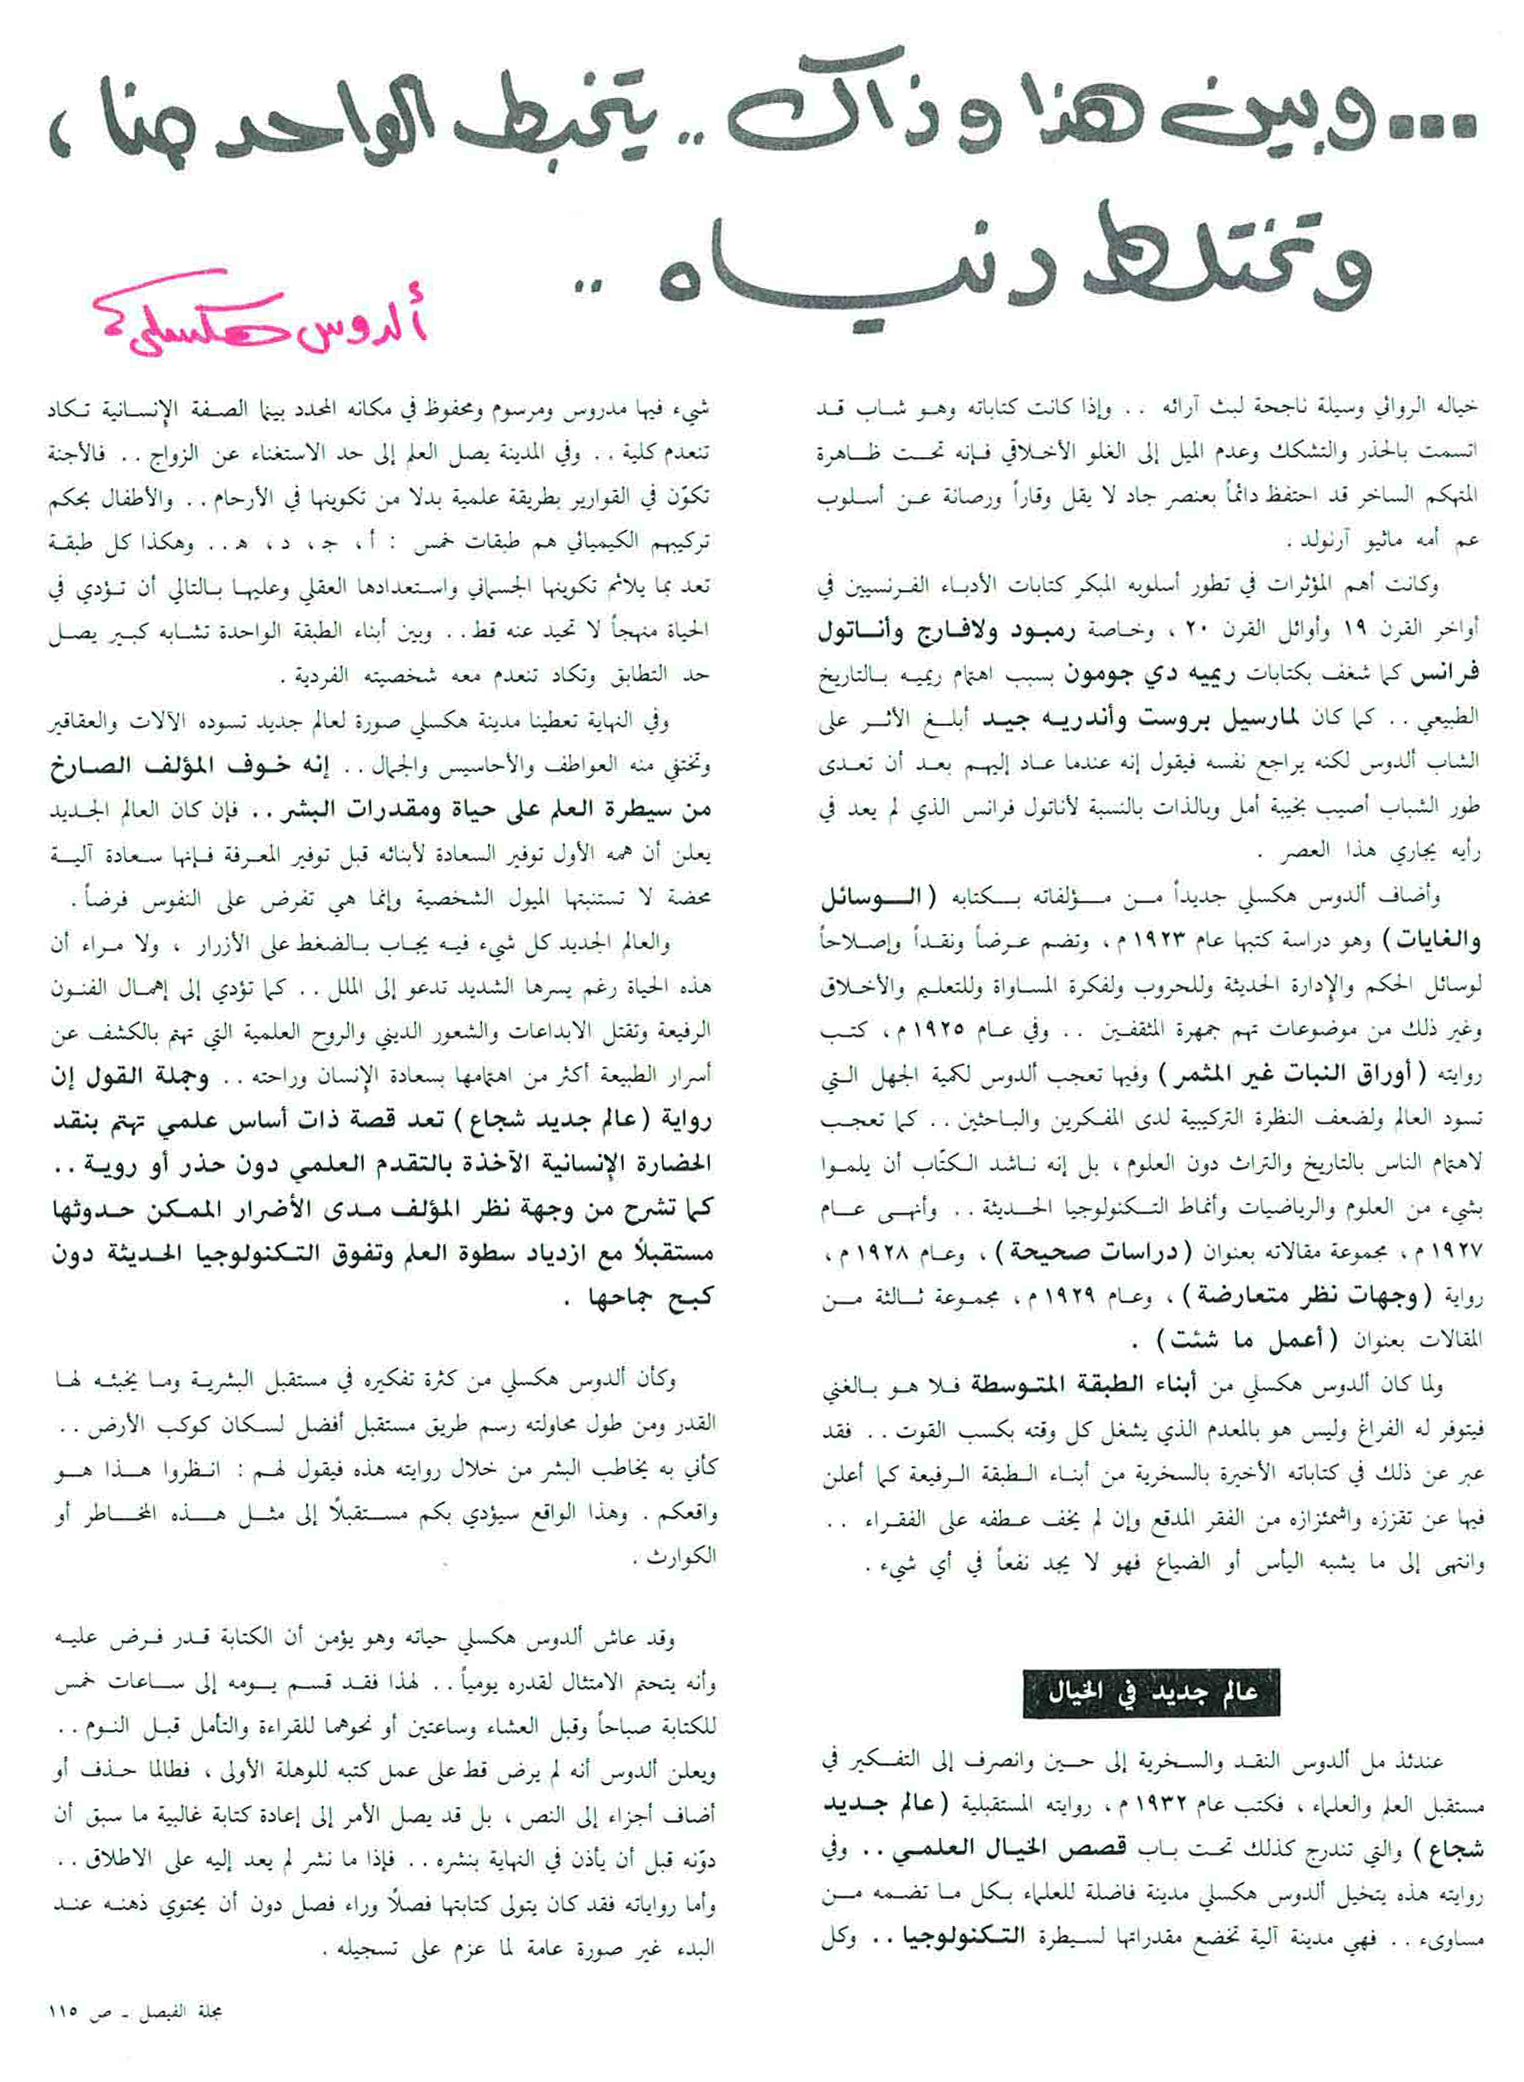 ...وبين هذا وذاك .. يتخبط الواحد منا ،
وتختلط دنياه ..
ألدوس هكسلي
خياله الروائي وسيلة ناجحة لبث آرائه .. وإذا كانت كتاباته وهو شاب قد
اتسمت بالحذر والتشكك وعدم الميل إلى الغلو الأخلاقي فإنه تحت ظاهرة
المتهكم الساخر قد احتفظ دائماً بعنصر جاد لا يقل وقاراً ورصانة عن أسلوب
عم أمه ماثيو آرنولد .
وكانت أهم المؤثرات في تطور أسلوبه المبكر كتابات الأدباء الفرنسيين في
أواخر القرن ١٩ وأوائل القرن ٢٠ ، وخاصة رمبود ولافارج وأناتول
فرانس كما شغف بكتابات ريميه دي جومون بسبب اهتمام ريميه بالتاريخ
الطبيعي .. كما كان لمارسيل بروست وأندريه جيد أبلغ الأثر على
الشاب ألدوس لكنه يراجع نفسه فيقول إنه عندما عاد إليهم بعد أن تعدى
طور الشباب أصيب بخيبة أمل وبالذات بالنسبة لأناتول فرانس الذي لم يعد في
رأيه يجاري هذا العصر .
وأضاف ألدوس هكسلي جديداً من مؤلفاته بكتابه (الوسائل
والغايات) وهو دراسة كتبها عام ١٩٢٣ م ، وتضم عرضاً ونقداً وإصلاحاً
لوسائل الحكم والإدارة الحديثة وللحروب ولفكرة المساواة وللتعليم والأخلاق
وغير ذلك من موضوعات تهم جمهرة المثقفين .. وفي عام ١٩٢٥ م ، كتب
روايته (أوراق النبات غير المثمر) وفيها تعجب ألدوس لكمية الجهل التي
تسود العالم ولضعف النظرة التركيبية لدى المفكرين والباحثين .. كما تعجب
لاهتمام الناس بالتاريخ والتراث دون العلوم ، بل إنه ناشد الكتّاب أن يلموا
بشيء من العلوم والرياضيات وأنماط التكنولوجيا الحديثة .. وأنهى عام
١٩٢٧ م ، مجموعة مقالاته بعنوان (دراسات صحيحة) ، وعام ١٩٢٨ م ،
رواية (وجهات نظر متعارضة) ، وعام ١٩٢٩ م ، مجموعة ثالثة من
المقالات بعنوان (أعمل ما شئت) .
ولما كان ألدوس هكسلي من أبناء الطبقة المتوسطة فلا هو بالغني
فيتوفر له الفراغ وليس هو بالمعدم الذي يشغل كل وقته بكسب القوت .. فقد
عبر عن ذلك في كتاباته الأخيرة بالسخرية من أبناء الطبقة الرفيعة كما أعلن
فيها عن تقززه واشمئزازه من الفقر المدقع وإن لم يخف عطفه على الفقراء ..
وانتهى إلى ما يشبه اليأس أو الضياع فهو لا يجد نفعاً في أي شيء .
عالم جديد في الخيال
عندئذ مل ألدوس النقد والسخرية إلى حين وانصرف إلى التفكير في
مستقبل العلم والعلماء ، فكتب عام ١٩٣٢ م ، روايته المستقبلية (عالم جديد
شجاع) والتي تندرج كذلك تحت باب قصص الخيال العلمي .. وفي
روايته هذه يتخيل ألدوس هكسلي مدينة فاضلة للعلماء بكل ما تضمه من
مساوىء .. فهي مدينة آلية تخضع مقدراتها لسيطرة التكنولوجيا .. وكل
شيء فيها مدروس ومرسوم ومحفوظ في مكانه المحدد بينما الصفة الإنسانية تكاد
تنعدم كلية .. وفي المدينة يصل العلم إلى حد الاستغناء عن الزواج .. فالأجنة
تكوّن في القوارير بطريقة علمية بدلا من تكوينها في الأرحام .. والأطفال بحكم
تركيبهم الكيميائي هم طبقات خمس : أ ، جـ ، د ، هـ .. وهكذا كل طبقة
تعد بما يلائم تكوينها الجسماني واستعدادها العقلي وعليها بالتالي أن تؤدي في
الحياة منهجاً لا تحيد عنه قط .. وبين أبناء الطبقة الواحدة تشابه كبير يصل
حد التطابق وتكاد تنعدم معه شخصيته الفردية .
وفي النهاية تعطينا مدينة هكسلي صورة لعالم جديد تسوده الآلات والعقاقير
وتختفي منه العواطف والأحاسيس والجمال .. إنه خوف المؤلف الصارخ
من سيطرة العلم على حياة ومقدرات البشر .. فإن كان العالم الجديد
يعلن أن همه الأول توفير السعادة لأبنائه قبل توفير المعرفة فإنها سعادة آلية
محضة لا تستنبتها الميول الشخصية وإنما هي تفرض على النفوس فرضاً .
والعالم الجديد كل شيء فيه يجاب بالضغط على الأزرار ، ولا مراء أن
هذه الحياة رغم يسرها الشديد تدعو إلى الملل .. كما تؤدي إلى إهمال الفنون
الرفيعة وتقتل الابداعات والشعور الديني والروح العلمية التي تهتم بالكشف عن
أسرار الطبيعة أكثر من اهتمامها بسعادة الإنسان وراحته .. وجملة القول إن
رواية (عالم جديد شجاع) تعد قصة ذات أساس علمي تهتم بنقد
الحضارة الإنسانية الآخذة بالتقدم العلمي دون حذر أو روية ..
كما تشرح من وجهة نظر المؤلف مدى الأضرار الممكن حدوثها
مستقبلاً مع ازدياد سطوة العلم وتفوق التكنولوجيا الحديثة دون
كبح جماحها .
وكأن ألدوس هكسلي من كثرة تفكيره في مستقبل البشرية وما يخبئه لها
القدر ومن طول محاولته رسم طريق مستقبل أفضل لسكان كوكب الأرض ..
كأني به يخاطب البشر من خلال روايته هذه فيقول لهم : انظروا هذا هو
واقعكم . وهذا الواقع سيؤدي بكم مستقبلاً إلى مثل هذه المخاطر أو
الكوارث .
وقد عاش ألدوس هكسلي حياته وهو يؤمن أن الكتابة قدر فرض عليه
وأنه يتحتم الامتثال لقدره يومياً .. لهذا فقد قسم يومه إلى ساعات خمس
للكتابة صباحاً وقبل العشاء وساعتين أو نحوهما للقراءة والتأمل قبل النوم ..
ويعلن ألدوس أنه لم يرض قط على عمل كتبه للوهلة الأولى ، فطالما حذف أو
أضاف أجزاء إلى النص ، بل قد يصل الأمر إلى إعادة كتابة غالبية ما سبق أن
دوّنه قبل أن يأذن في النهاية بنشره .. فإذا ما نشر لم يعد إليه على الاطلاق ..
وأما رواياته فقد كان يتولى كتابتها فصلاً وراء فصل دون أن يحتوي ذهنه عند
البدء غير صورة عامة لما عزم على تسجيله .
مجلة الفيصل ـ ص ١١٥